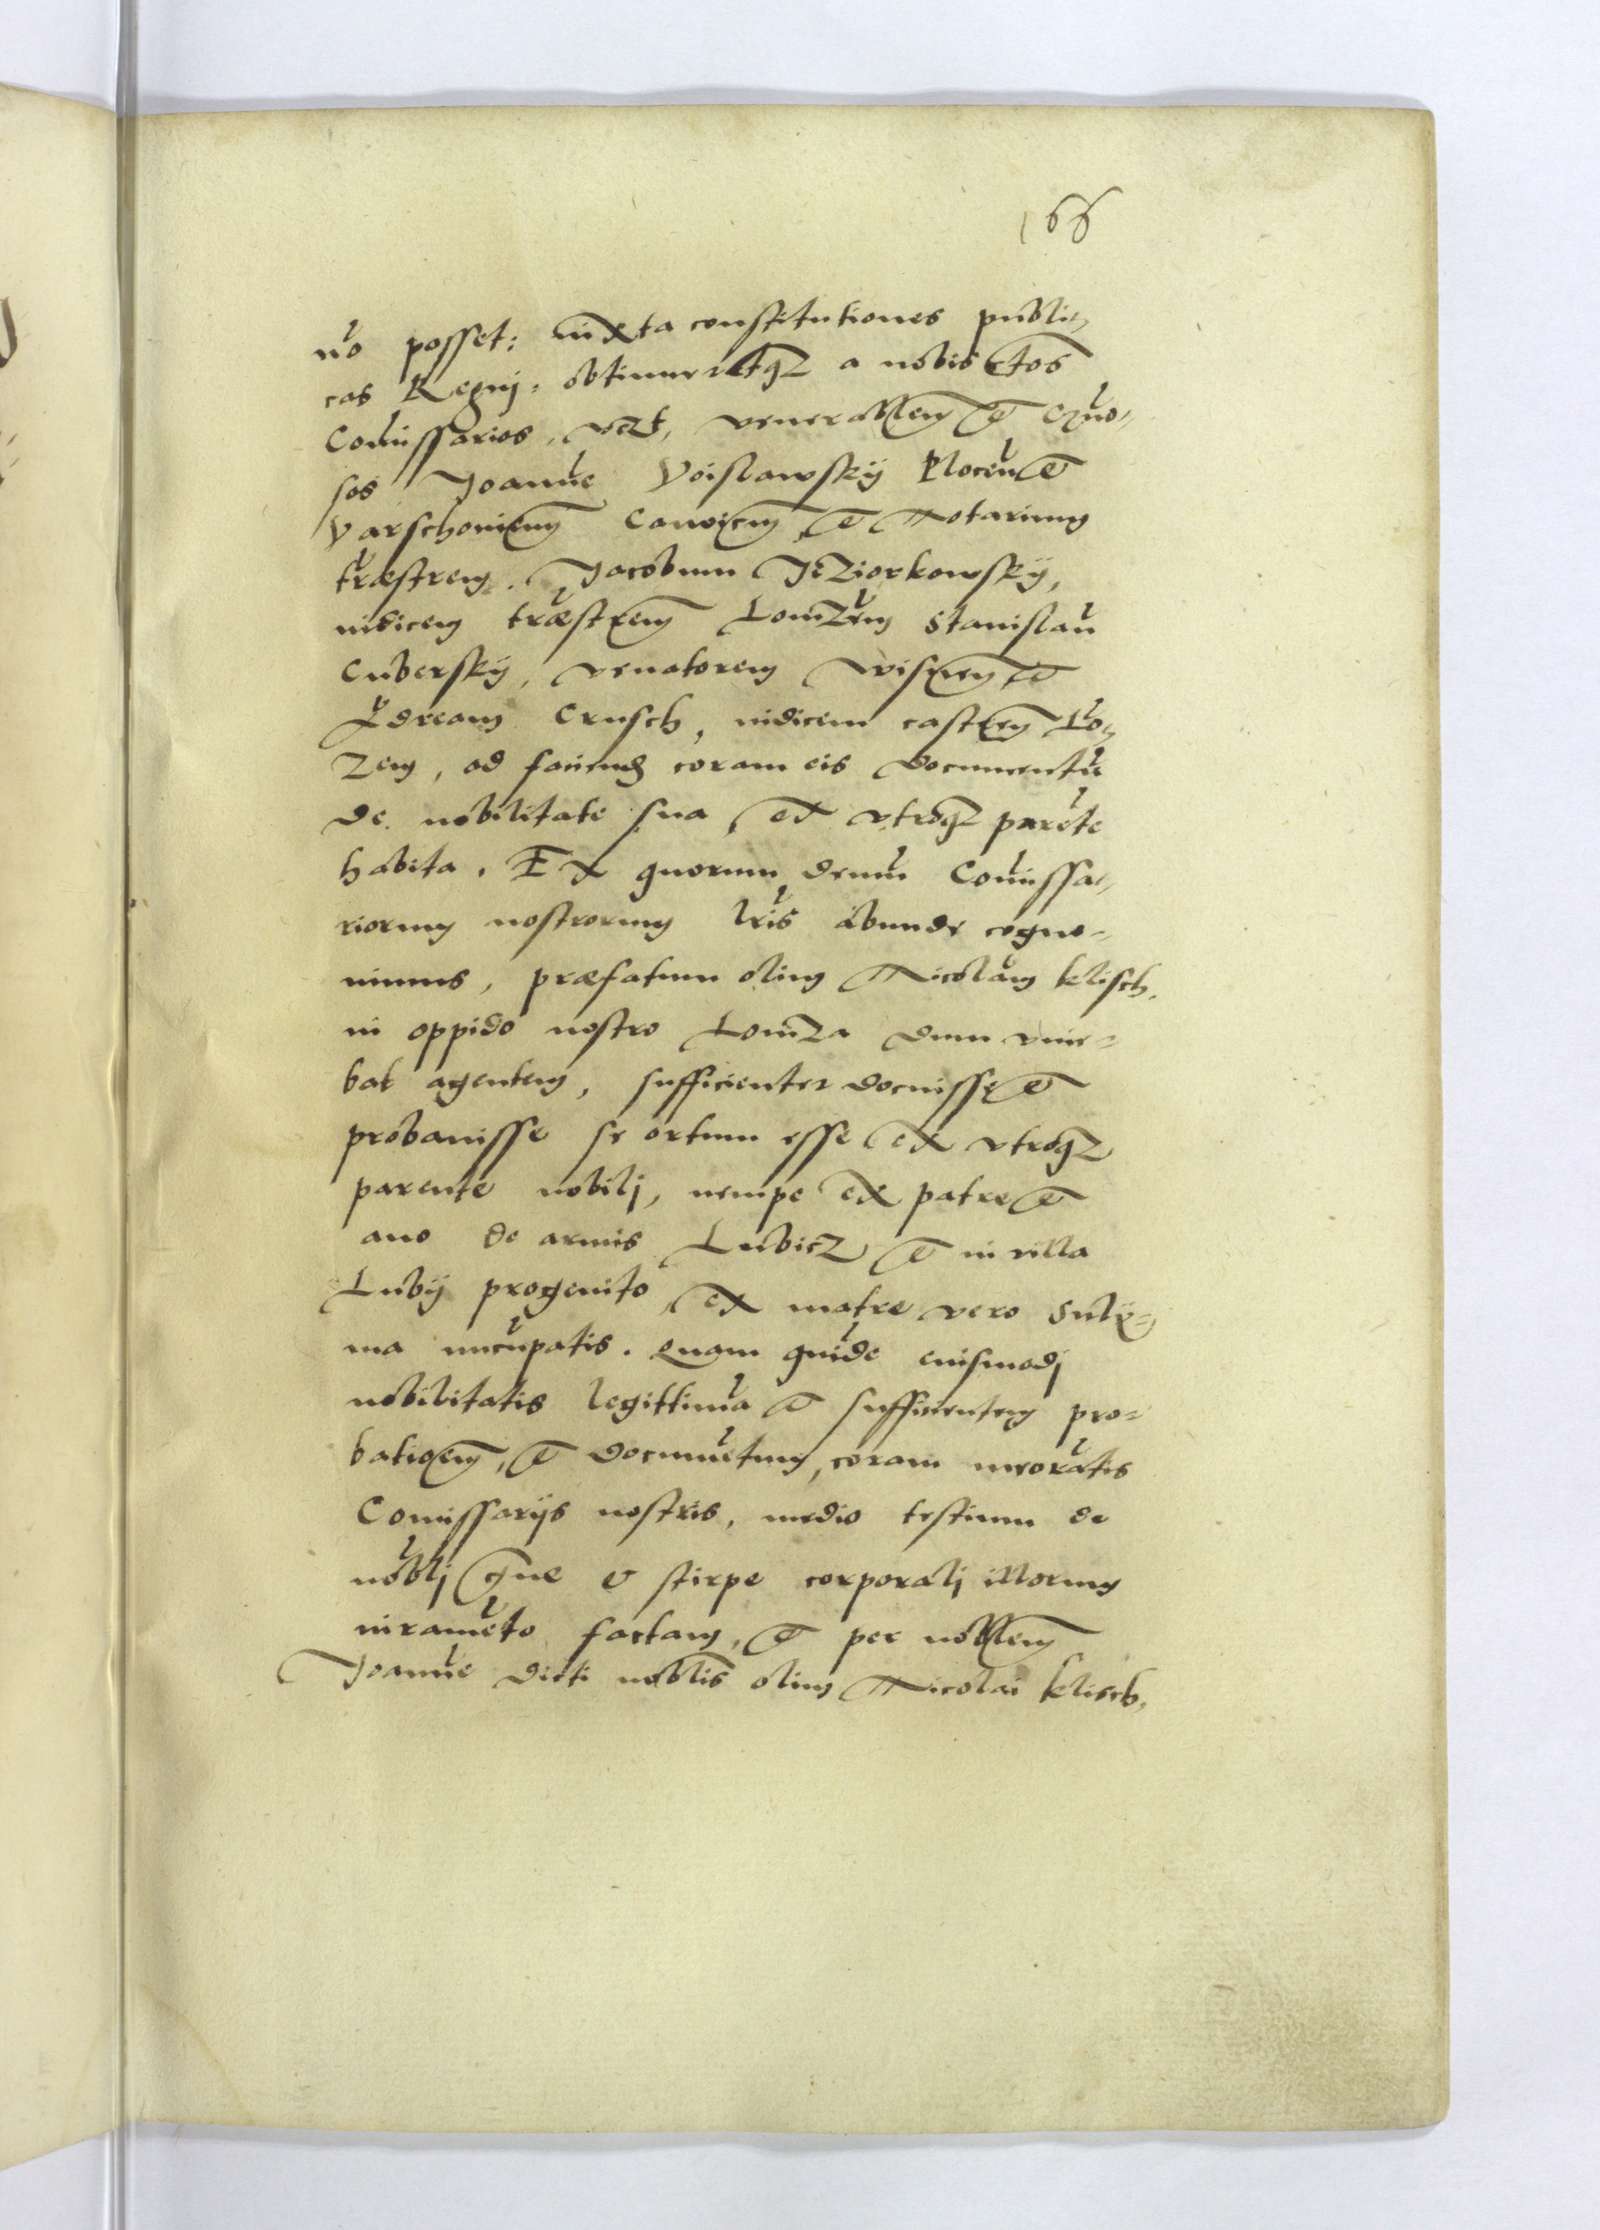 166
nō posset: iuxta constitutiones publi-
cas Regnj, obtinueratq3 a nobis c̄tos
Com̄issarios, vz̄t, venerablem̄ et gn̄o-
sos Joannē Voislawskÿ Plocen̄ et
Varschovien̄ Canonicum̄, et Notarium
trr̄æstrem. Jacobum Jeziorkowskÿ,
iudicem trr̄æstrem Lomzen̄ Stanislaū
Cuberskÿ, venatorem Wisnen̄ et
Ādream Crusch, iudicem castren̄ Lō-
zen, ad faciend coram eis documentū
de nobilitate sua, ex vtroq3 parēte
habita. Ex quorum demū Com̄issa-
riorum nostrorum lr̄is abunde cogno-
uimus, præfatum olim Nicolaū Klisch,
in oppido nostro Lomza dum viue-
bat agentem, sufficienter docuisse et
probauisse se ortum esse ex vtroq3
parente nobilj, nempe ex patre et
auo de armis Lubicz et in villa
Lubÿ progenito, ex matre vero Suly-
ma nūcupatis. Quam quidē eiusmodj
nobilitatis legittimā et sufficientem pro-
bationem̄, et documētum, coram meorātis
Comissarijs nostris, medio testium de
nōblj gn̄e & stirpe corporalj illorum
iuramēto factam, et per noblem̄
Joannē dicti noblis̄ olim Nicolai Klisch,